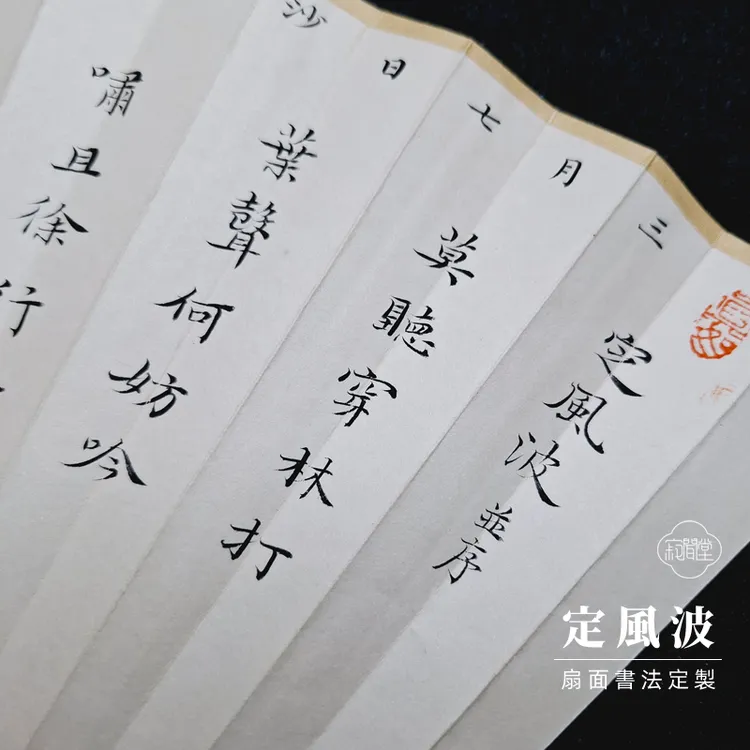 定風波並序
三月七日沙
莫聽穿林打
葉聲何妨吟
嘯且徐行
定風波
扇面書法定製